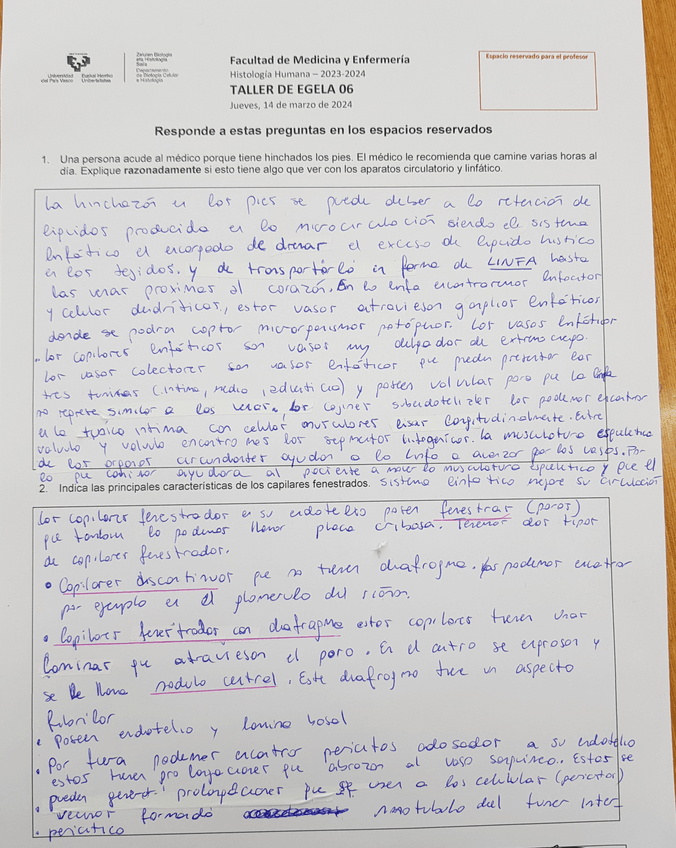 Universidad del País Vasco
Euskal Herriko Unibertsitatea
Zelulen Biologia eta Histologia Saila
Departamento de Biología Celular e Histología
Facultad de Medicina y Enfermería
Histología Humana – 2023-2024
TALLER DE EGELA 06
Jueves, 14 de marzo de 2024
Espacio reservado para el profesor
Responde a estas preguntas en los espacios reservados
1. Una persona acude al médico porque tiene hinchados los pies. El médico le recomienda que camine varias horas al
día. Explique razonadamente si esto tiene algo que ver con los aparatos circulatorio y linfático.
La hinchazón en los pies se puede deber a la retención de
líquidos producida en la microcirculación siendo el sistema
linfático el encargado de drenar el exceso de líquido hístico
en los tejidos. y de transportarlo en forma de LINFA hasta
las venas próximas al corazón. En la linfa encontraremos linfocitos
y células dendríticas, estos vasos atraviesan ganglios linfáticos
donde se podrán captar microorganismos patógenos. Los vasos linfáticos
• Los capilares linfáticos son vasos muy delgados de extremo ciego.
Los vasos colectores son vasos linfáticos que pueden presentar las
tres túnicas (íntima, media, adventicia) y poseen válvulas para que la linfa
no regrese similar a las venas, los cojines subendoteliales los podemos encontrar
en la túnica íntima con células musculares lisas longitudinalmente. Entre
válvula y válvula encontramos los segmentos. La musculatura esquelética
de los órganos circundantes ayudan a la linfa a avanzar por los vasos. Por
lo que caminar ayudará al paciente a mover la musculatura esquelética y que el
sistema linfático mejore su circulación
2. Indica las principales características de los capilares fenestrados.
Los capilares fenestrados en su endotelio poseen fenestras (poros)
que también lo podemos llamar placa cribosa. Tenemos dos tipos
de capilares fenestrados.
• Capilares discontinuos que no tienen diafragma. Los podemos encontrar
por ejemplo en el glomérulo del riñón.
• Capilares fenestrados con diafragma estos capilares tienen unas
laminas que atraviesan el poro. En el centro se engrosan y
se le llama nodulo central. Este diafragma tiene un aspecto
fibrilar
• Poseen endotelio y lamina basal
• Por fuera podemos encontrar pericitos adosados a su endotelio
estos tienen prolongaciones que abrazan al vaso sanguíneo. Estos se
pueden generar prolongaciones que se unen a las células (pericitos)
• vecinas formando nanotubulo del tunel inter-
• pericítico